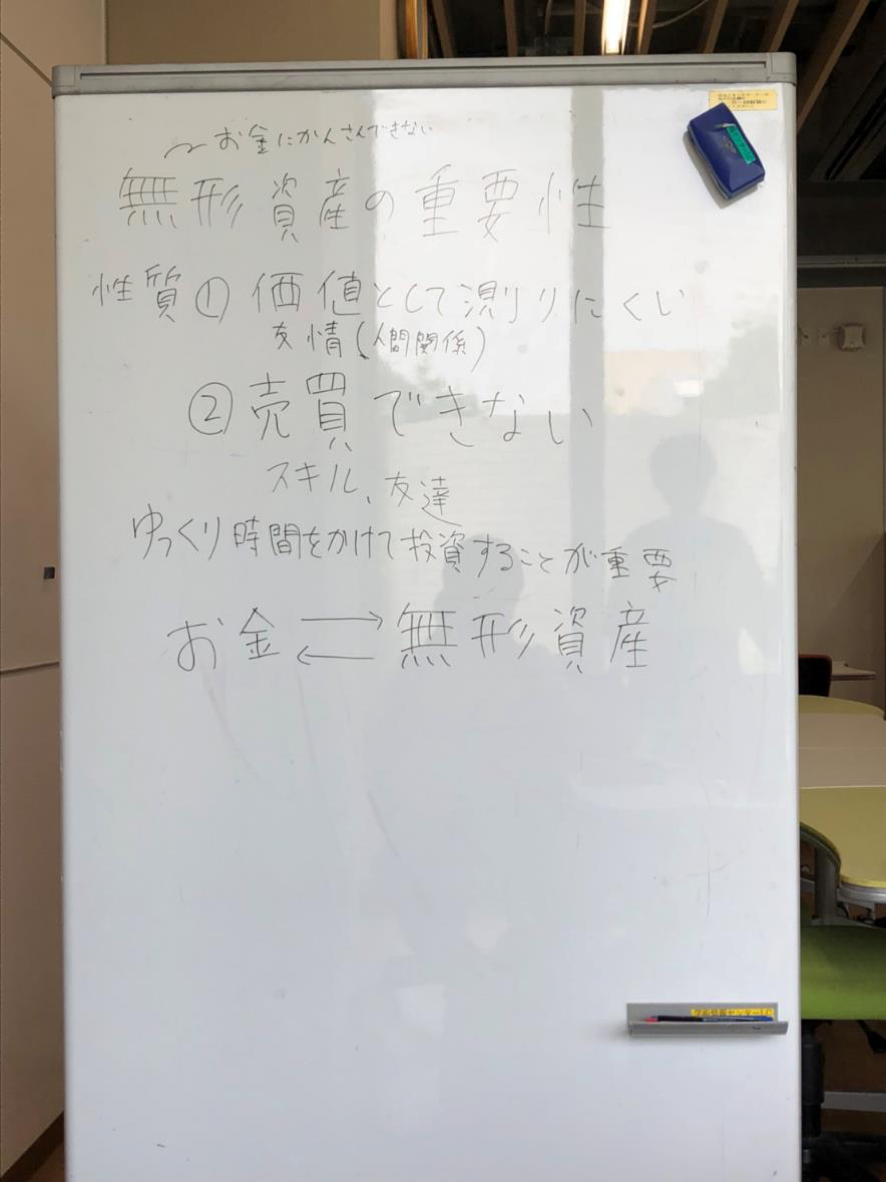 〜お金にかんさんできない
無形資産の重要性
性質① 価値として測りにくい
友情(人間関係)
②売買できない
スキル、友達
ゆっくり時間をかけて投資することが重要
お金⇄無形資産